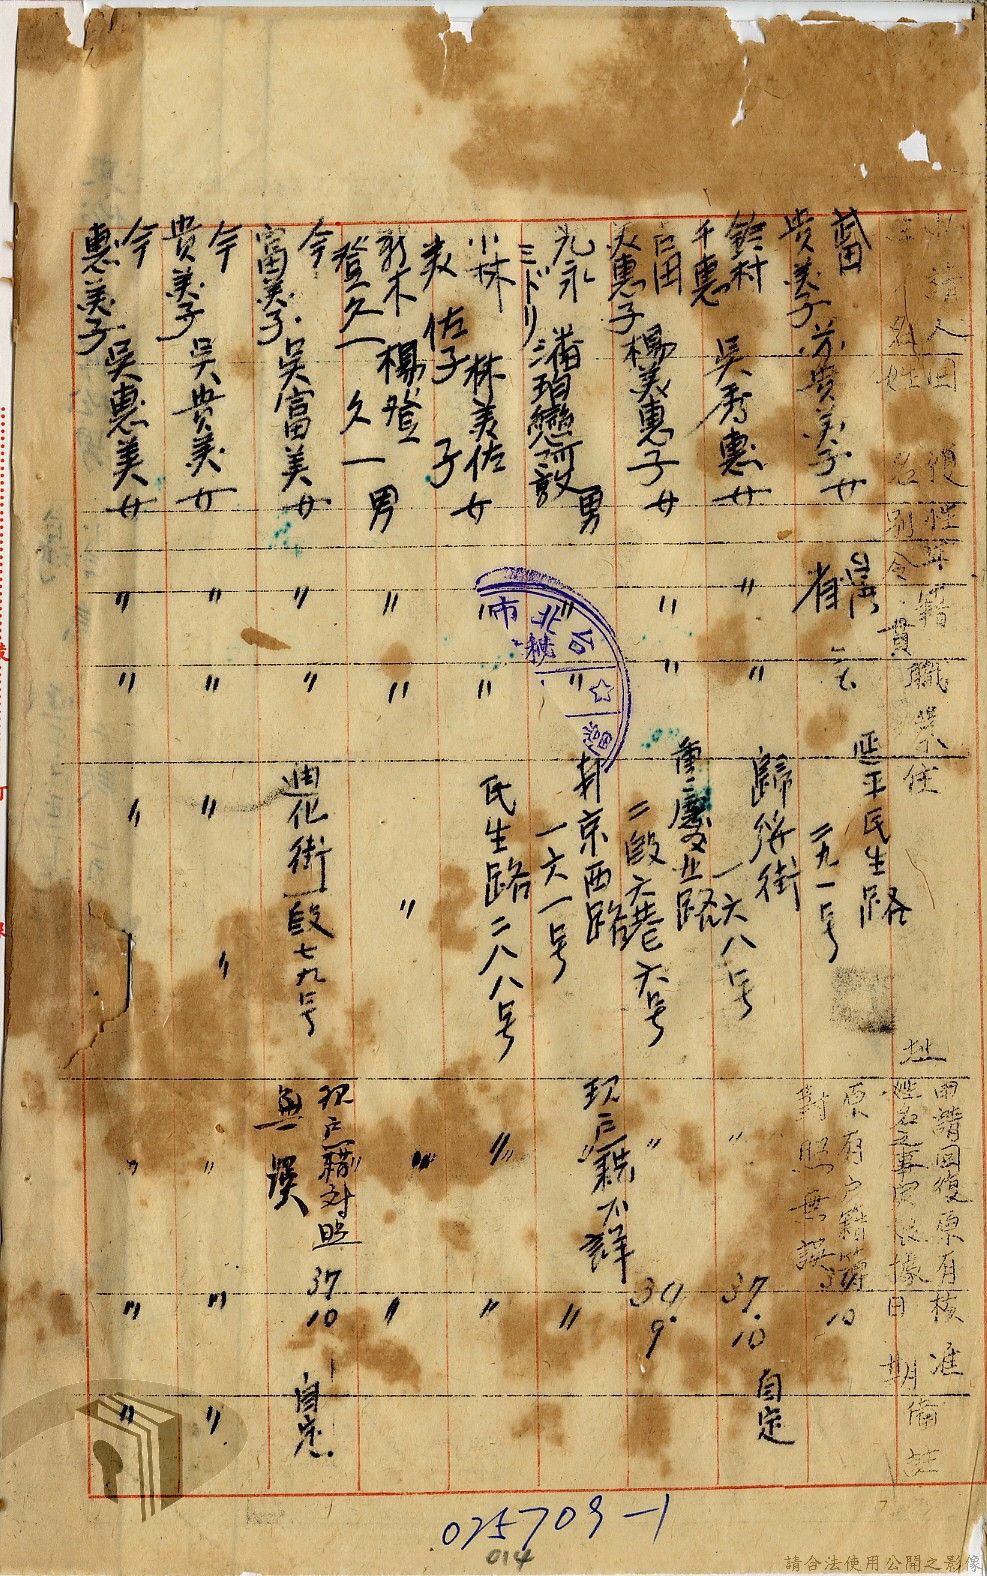 申請人回復性年籍職業住址申請回復原有核准備註
姓名姓名別令貫姓名之事実根據日期
貴美子
貴美子 女 省
延平民生路
二九一号
原有戶籍簿
對照無誤
10
鈴村
千惠
吳秀惠 女 〃 〃
歸綏街
一六八号
〃
37
10
自定
美惠子
楊美惠子 女 〃 〃
重慶北路
二段六巷六号
〃
9
九永
ミドリ
男 〃 〃
南京西路
一六一号
現戶籍不詳
〃
小林
美佐子
林美佐子 女 〃 〃
民生路二八八号
〃
〃
新木
登久一
楊登久一 男 〃 〃
〃
〃
〃
今
富美子
吳富美 女 〃 〃
迪化街一段七九号
現戶籍対照
無誤
37
10
自定
今
貴美子
吳貴美 女 〃 〃
〃
〃
〃
〃
〃
今
惠美子
吳惠美 女 〃 〃
〃
〃
〃
〃
台北市
025709-1
014
請合法使用公開之影像